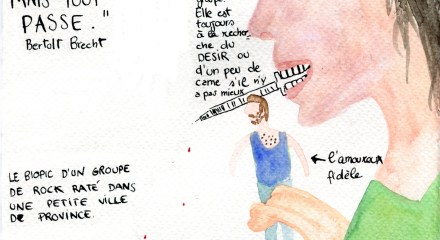 MAIS TOUT
PASSE."
Bertolt Brecht
groupe.
Elle est
toujours
à la recher-
che du
DESIR ou
d'un peu de
came s'il n'y
a pas mieux
← l'amoureux
fidèle
LE BIOPIC D'UN GROUPE
DE ROCK RATÉ DANS
UNE PETITE VILLE
DE PROVINCE.